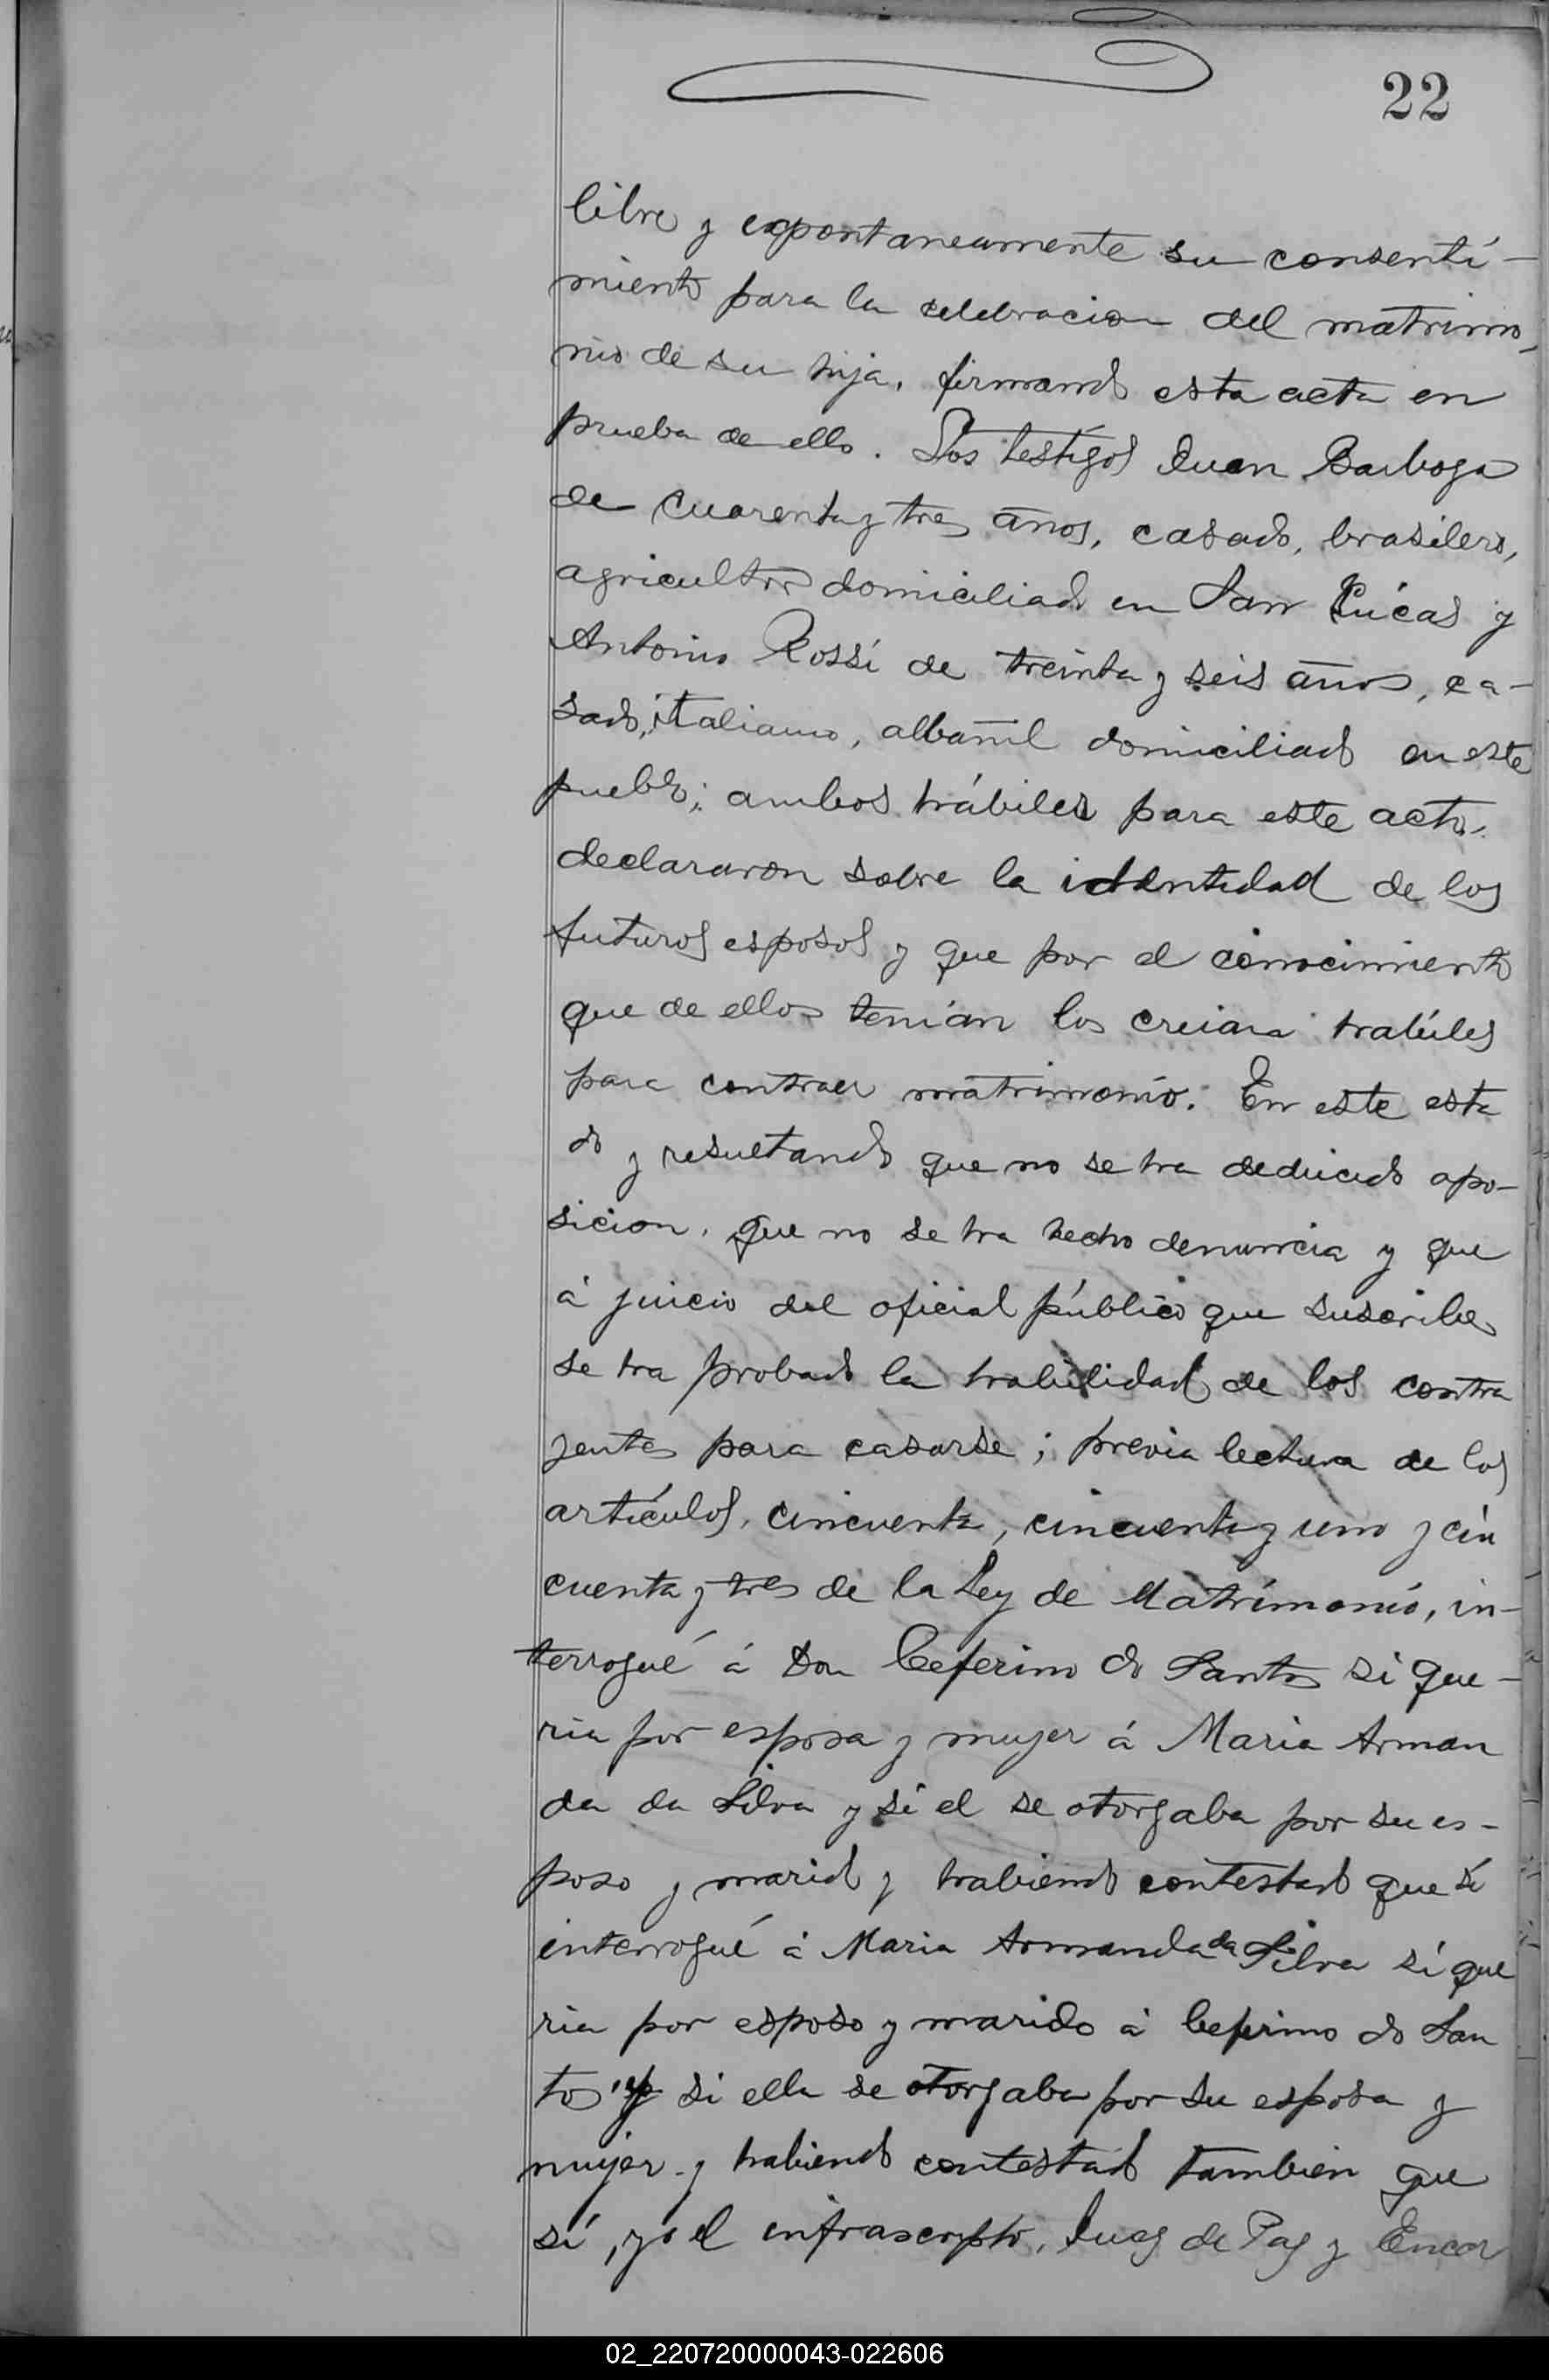 22
libre y expontaneamente su consentí-
miento para la celebracion del matrimo-
nio de su hija, firmando esta acta en
prueba de ello. Los testigos Juan Barboza
de cuarenta y tres años, casado, brasilero,
agricultor domiciliado en San Lúcas y
Antonio Rossi de treinta y seis años, ca-
sado, italiano, albañil domiciliado en este
pueblo; ambos hábiles para este acto,
declararon sobre la identidad de los
futuros esposos y que por el conocimiento
que de ellos tenían los creian habíles
para contraer matrimonio. En este esta
do y resultando que no se ha deducido opo-
sicion, que no se ha hecho denuncia y que
á juicio del oficial público que suscribe
se ha probado la habilidad de los contra
yentes para casarse; previa lectura de los
artículos, cincuenta, cincuenta y uno y cin
cuenta y tres de la Ley de Matrimonio, in-
terrogué á Don Ceferino do Santos si que-
ria por esposa y mujer á Maria Arman
da da Silva y si el se otorgaba por su es-
poso y marido y habiendo contestado que si
interrogué á Maria Armanda da Silva si que
ria por esposo y marido á Ceferino do San
tos y si ella se otorgaba por su esposa y
mujer y habiendo contestado tambien que
sí, yo el infrascripto, Juez de Paz y Encar
02_220720000043-022606